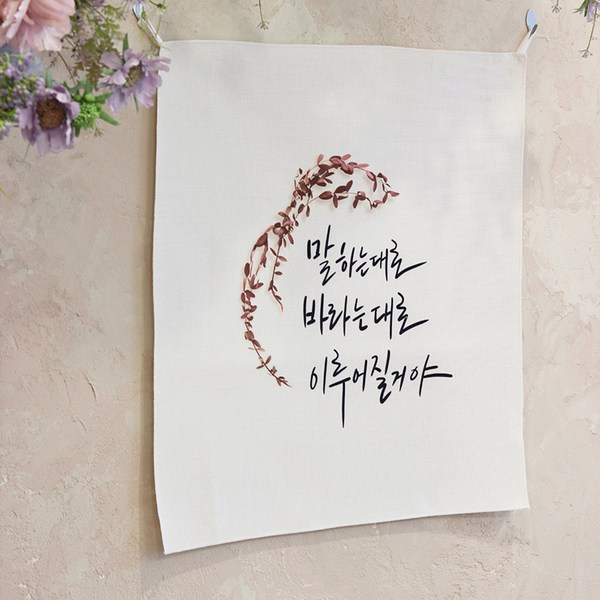 말하는대로
바라는대로
이루어질거야